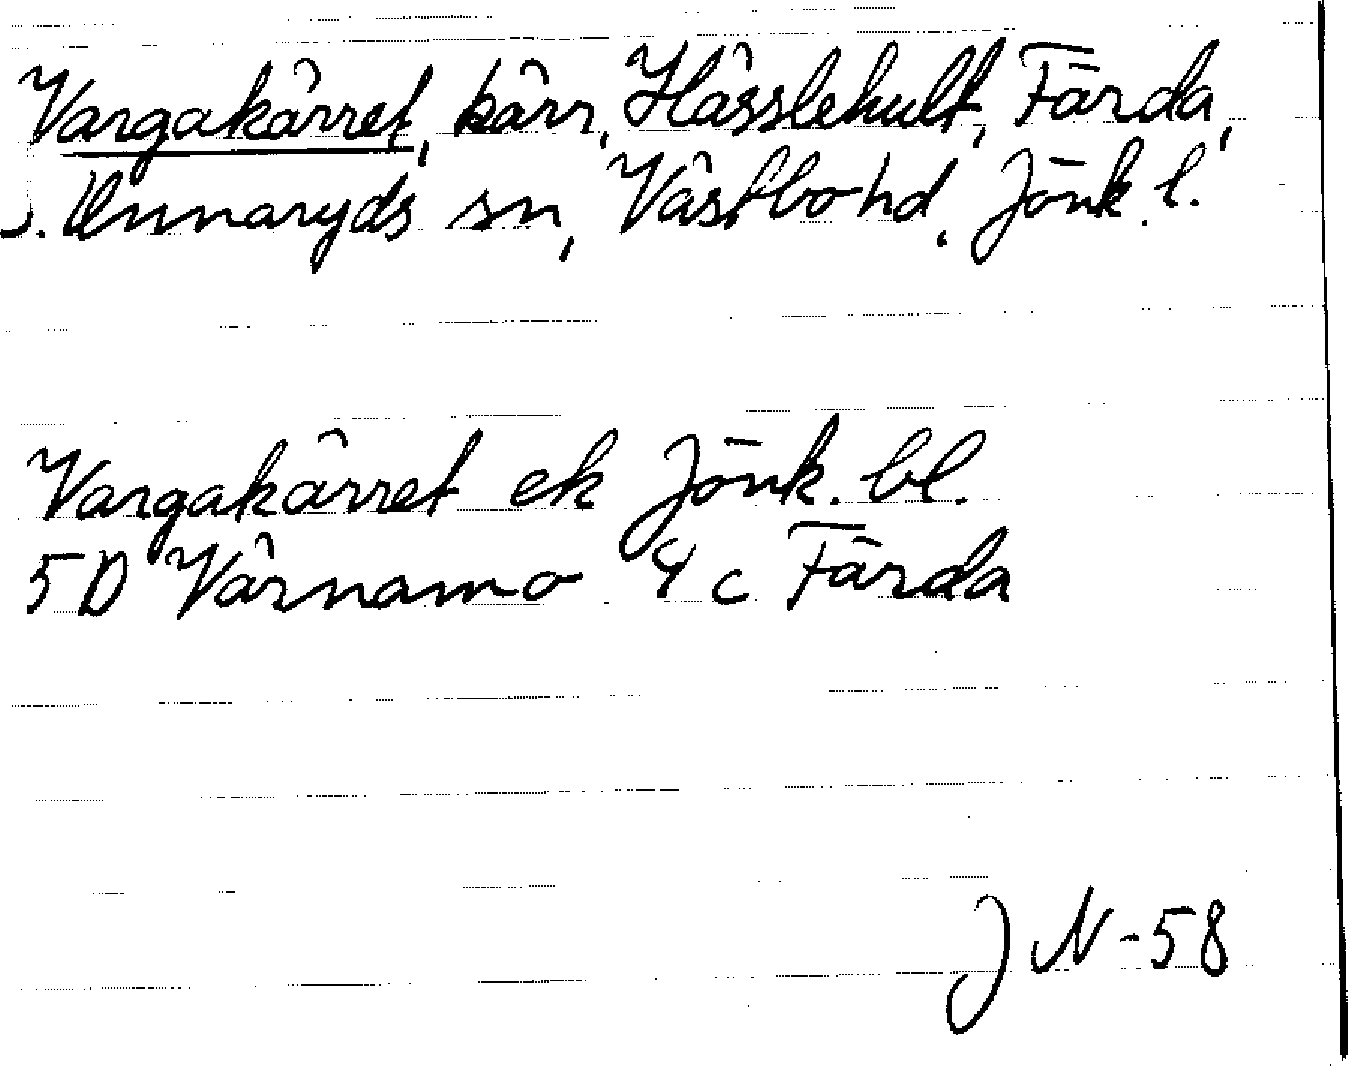 Vargakärret, kärr, Hässlehult, Färda,
S. Unnaryds sn, Västbo hd, Jönk. l.
Vargakärret ek Jönk. bl.
5D Värnamo 4c Färda
JN-58